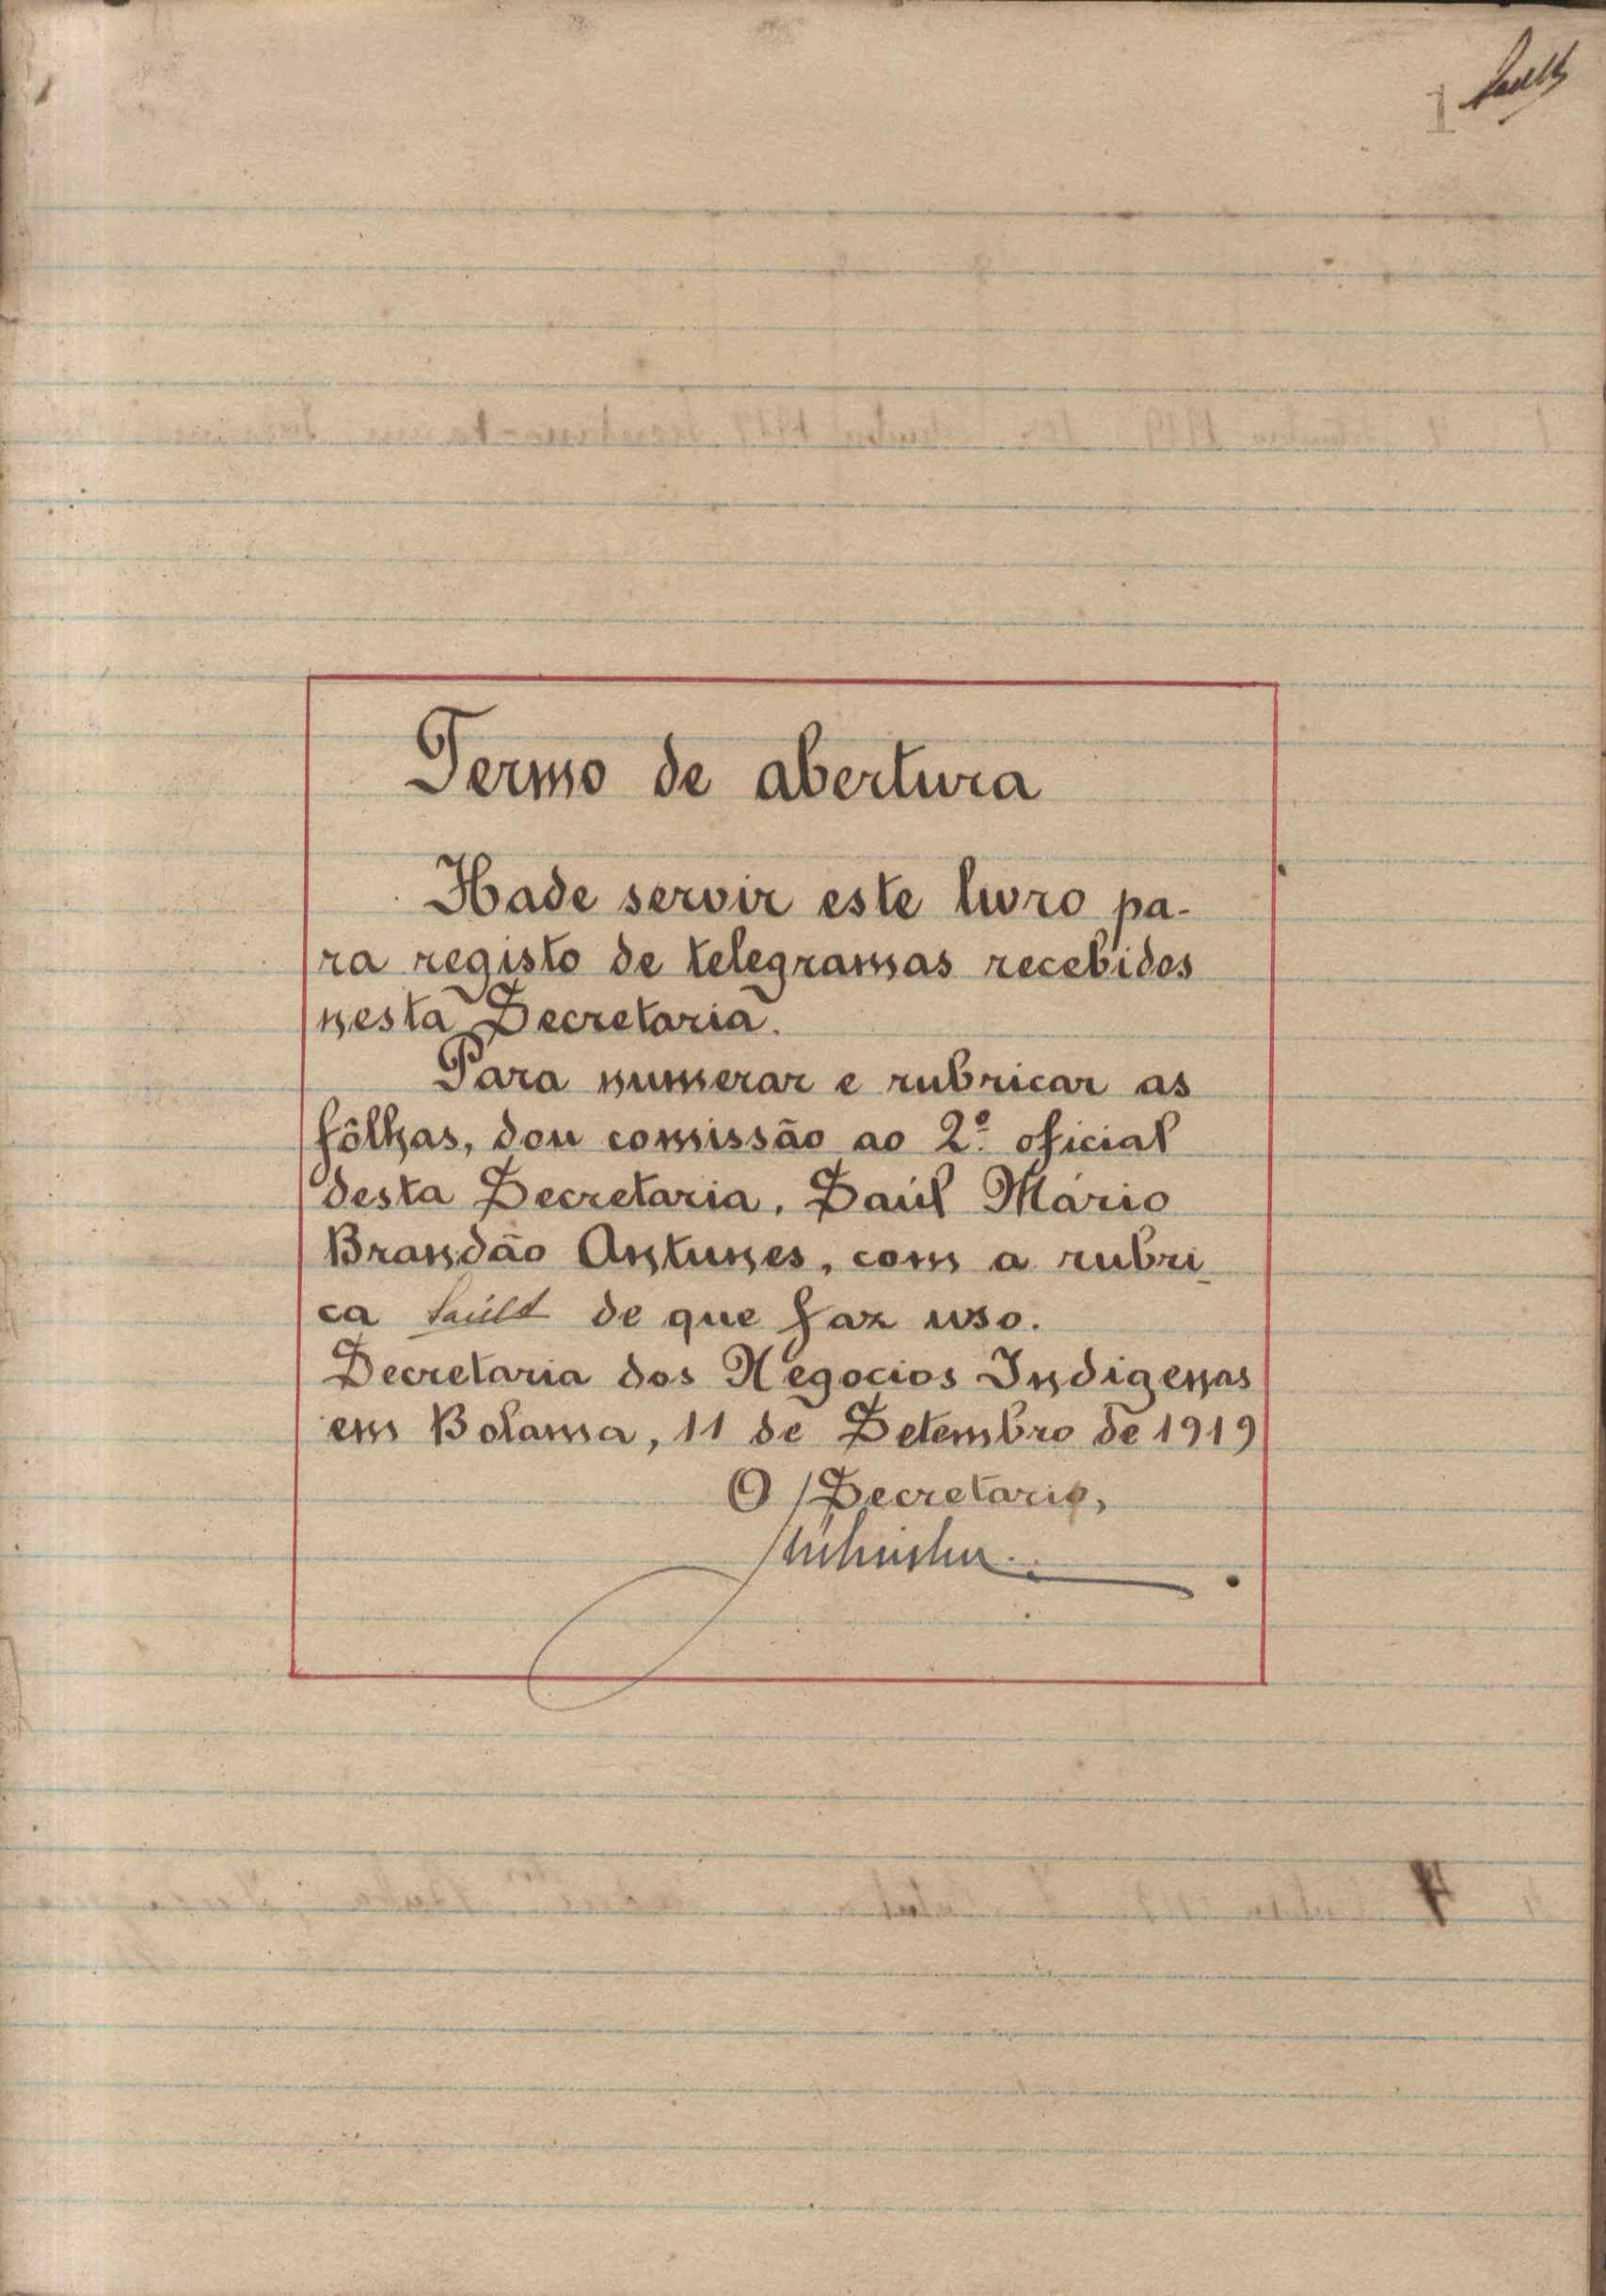 1
Termo de abertura
Hade servir este livro pa-
ra registo de telegramas recebidos
nesta Secretaria.
Para numerar e rubricar as
fôlhas, dou comissão ao 2º oficial
desta Secretaria, Saúl Mário
Brandão Antunes, com a rubri
ca de que faz uso.
Secretaria dos Negocios Indigenas
em Bolama, 11 de Setembro de 1919
O Secretario,